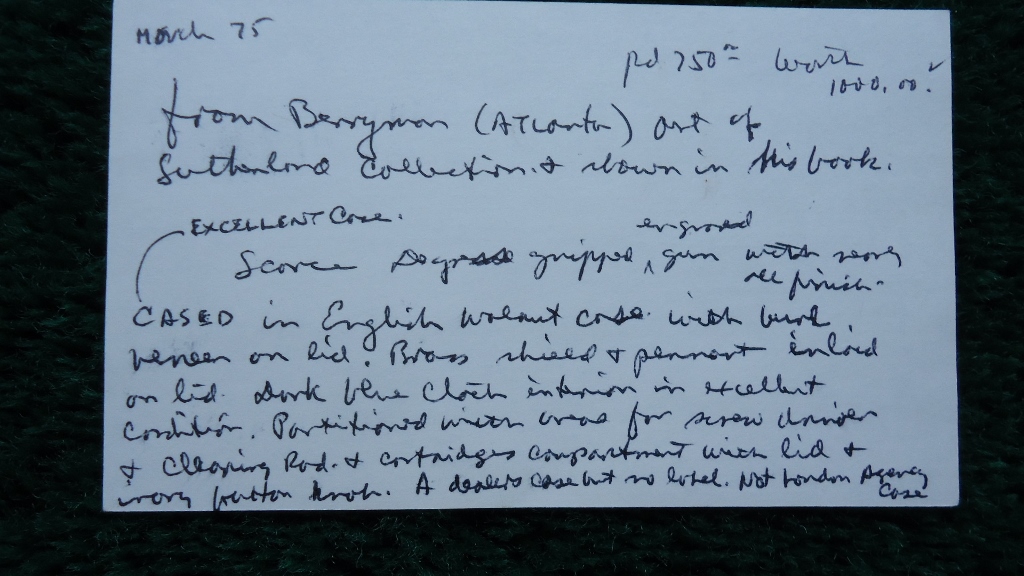 March 75
pd 750 Worth
1000.00.
from Berryman (Atlanta) out of
Sutherland Collection & shown in this book.
EXCELLENT Case.
engraved
Scarce gripped gun with nearly
all finish.
CASED in English Walnut case with burl
veneer on lid. Brass shield & pennant inlaid
on lid. Dark blue Cloth interior in excellent
Condition. Partitioned with areas for screw driver
& Cleaning Rod. & cartridges compartment with lid &
ivory button knob. A dealers case but no label. Not London Agency
Case